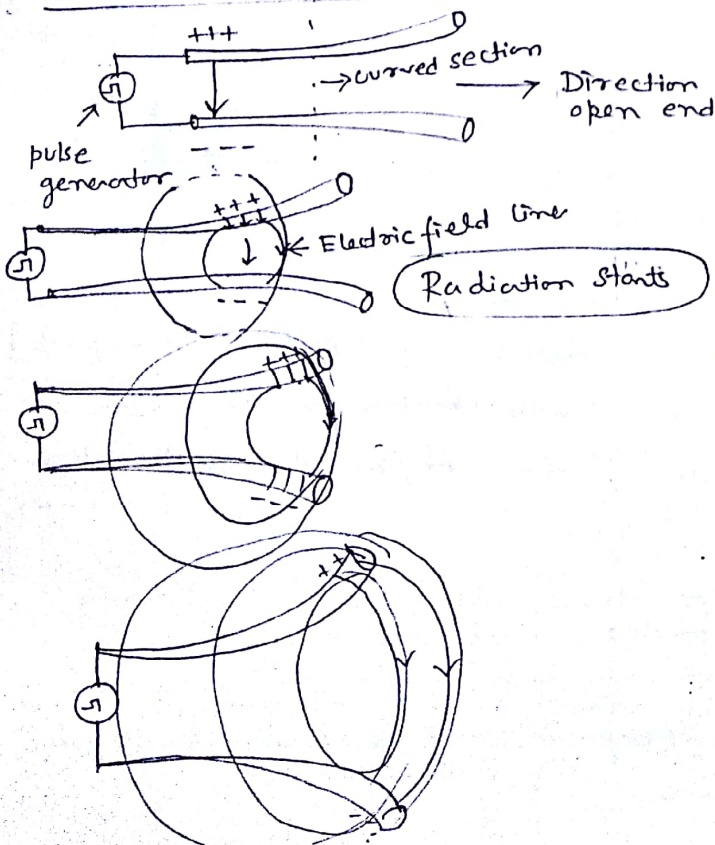 +++
→ curved section
→ Direction
open end
pulse
generator
---
+++
← Electric field line
Radiation Starts
---
+++
---
++
--